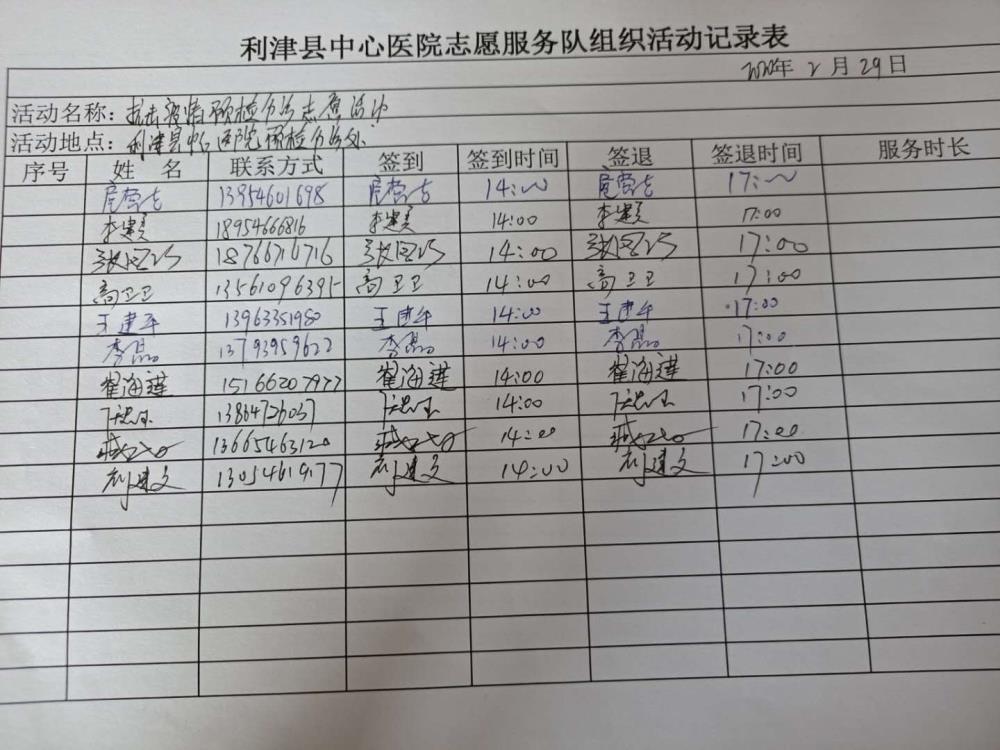 利津县中心医院志愿服务队组织活动记录表
2020年 2 月 29日
活动名称：抗击疫情预检分诊志愿活动
活动地点：利津县中心医院预检分诊处
序号 姓 名 联系方式 签到 签到时间 签退 签退时间 服务时长
13954601698 14:00 17:00
18954666816 14:00 17:00
18766716716 14:00 17:00
高卫卫 13561096395 高卫卫 14:00 高卫卫 17:00
王建军 13963351980 王建军 14:00 王建军 17:00
李磊 13793959622 李磊 14:00 李磊 17:00
翟海莲 15166207977 翟海莲 14:00 翟海莲 17:00
13864726037 14:00 17:00
13665463120 14:00 17:00
刘建文 13054619177 刘建文 14:00 刘建文 17:00